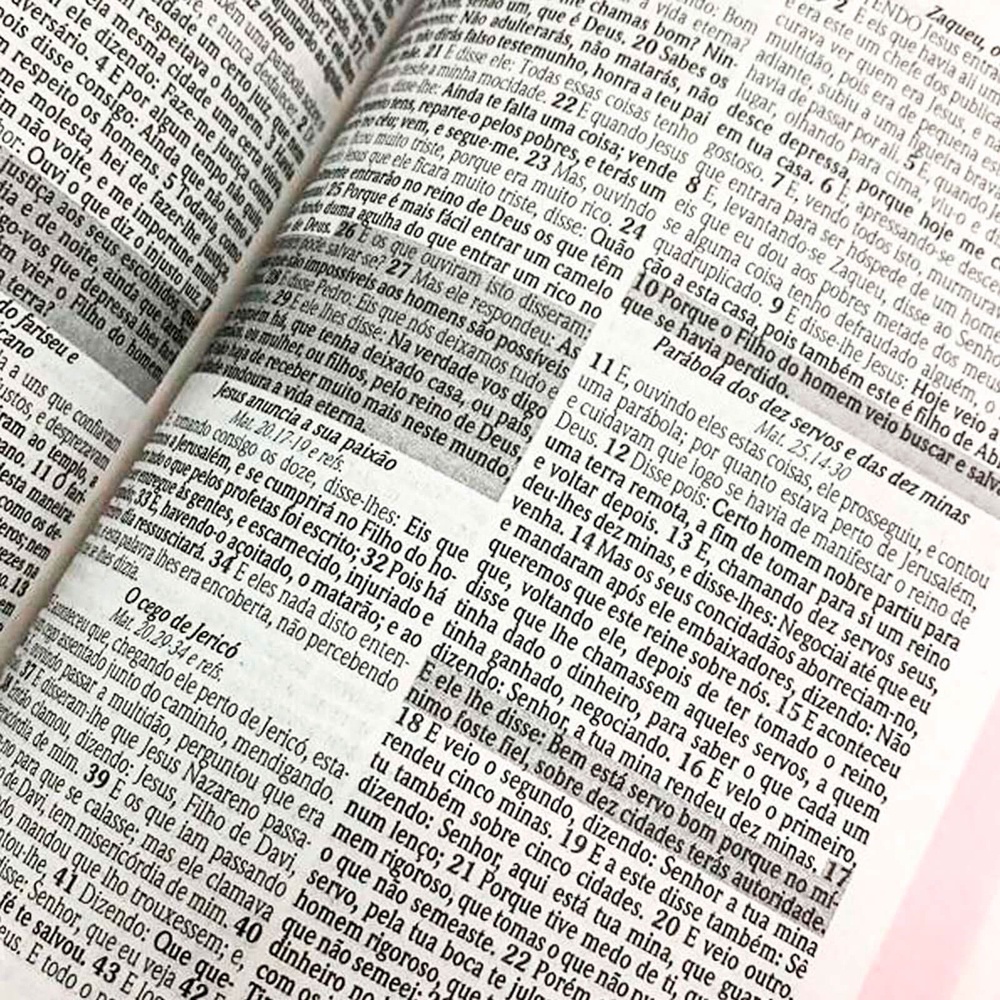 uma parábola sobre
e nunca desfalecer, 2 Di-
dade um certo juiz, que
respeitava o homem. 3 Havia
mesma cidade uma certa viúva
ele, dizendo: Faze-me justiça contra
versário. 4 E por algum tempo não quis
pois disse consigo: Ainda que não temo a
respeito os homens, 5 Todavia, como
me molesta, hei de fazer-lhe justiça
não volte, e me importune muito
Ouvi o que diz o injusto juiz.
justiça aos seus escolhidos,
dia e de noite, ainda que tardio
digo-vos que depressa lhes
vier o Filho do homem
terra?
do fariseu e
cano
a uns que confiavam
justos, e desprezavam
ao templo, a
11 O fari-
desta maneira:
como os de-
13
chamas bom? Nin-
senão um, que é Deus. 20 Sabes os
Não adulterarás, não matarás, não
não dirás falso testemunho, honra a teu pai
21 E disse ele: Todas essas coisas tenho
desde a minha mocidade. 22 E quando Jesus
disse-lhe: Ainda te falta uma coisa; vende
tens, reparte-o pelos pobres, e terás um
no céu; vem, e segue-me. 23 Mas, ouvindo
ficou muito triste, porque era muito rico. 24
Jesus que ele ficara muito triste, disse: Quão
entrarão no reino de Deus os que têm
25 Porque é mais fácil entrar um camelo
duma agulha do que entrar um rico no
de Deus. 26 E os que ouviram isto disseram:
pode salvar-se? 27 Mas ele respondeu: As
que são impossíveis aos homens são possíveis
28 E disse Pedro: Eis que nós deixamos tudo e
29 E ele lhes disse: Na verdade vos digo
ninguém há, que tenha deixado casa, ou pais,
ou mulher, ou filhos, pelo reino de Deus,
haja de receber muito mais neste mundo,
vindoura a vida eterna.
Jesus anuncia a sua paixão
Mat. 20.17-19 e refs.
tomando consigo os doze, disse-lhes: Eis que
a Jerusalém, e se cumprirá no Filho do ho-
tudo o que pelos profetas foi escrito; 32 Pois há
entregue às gentes, e escarnecido, injuriado e
33 E, havendo-o açoitado, o matarão; e ao
dia ressuscitará. 34 E eles nada disto enten-
esta palavra lhes era encoberta, não percebendo
se lhes dizia.
O cego de Jericó
Mat. 20.29-34 e refs.
aconteceu que, chegando ele perto de Jericó, esta-
cego assentado junto do caminho, mendigando.
ouvindo passar a multidão, perguntou que era
37 E disseram-lhe que Jesus Nazareno passa-
Então clamou, dizendo: Jesus, Filho de Davi,
misericórdia de mim. 39 E os que iam passando
para que se calasse; mas ele clamava
de Davi, tem misericórdia de mim. 40
mandou que lho trouxessem; e,
41 Dizendo: Que que-
disse: Senhor, que eu veja 42 E
fé te salvou. 43 E log
Deus. E todo o
Zaqueu, o
TENDO Jesus entra
2 E eis que havia ali um
e era este um chefe dos public
curava ver quem era Jesus, e n
multidão, pois era de pequena es
adiante, subiu a uma figueira brav
havia de passar por ali. 5 E, quando Je
lugar, olhando para cima, viu-o e d
desce depressa, porque hoje me c
em tua casa. 6 E, apressando-se, desce
gostoso. 7 E, vendo todos isto, murmura
que entrara para ser hóspede de um hom
8 E, levantando-se Zaqueu, disse ao Senho
eis que eu dou aos pobres metade dos meu
se alguma coisa tenho defraudado alguém, o
quadruplicado. 9 E disse-lhe Jesus: Hoje veio a
ção a esta casa, pois também este é filho de Abr
10 Porque o Filho do homem veio buscar e salva
que se havia perdido.
Parábola dos dez servos e das dez minas
Mat. 25.14-30
11 E, ouvindo eles estas coisas, ele prosseguiu, e contou
uma parábola; por quanto estava perto de Jerusalém,
e cuidavam que logo se havia de manifestar o reino de
Deus. 12 Disse pois: Certo homem nobre partiu para
uma terra remota, a fim de tomar para si um reino
e voltar depois. 13 E, chamando dez servos seus,
deu-lhes dez minas, e disse-lhes: Negociai até que eu
venha. 14 Mas os seus concidadãos aborreciam-no,
e mandaram após ele embaixadores, dizendo: Não
queremos que este reine sobre nós. 15 E aconteceu
que, voltando ele, depois de ter tomado o reino,
disse que lhe chamassem aqueles servos, a quem
tinha dado o dinheiro, para saber o que cada um
tinha ganhado, negociando. 16 E veio o primeiro,
dizendo: Senhor, a tua mina rendeu dez minas. 17
E ele lhe disse: Bem está servo bom porque no mí-
nimo foste fiel, sobre dez cidades terás autoridade.
18 E veio o segundo, dizendo: Senhor a tua mina
rendeu cinco minas. 19 E a este disse também: Sê
tu também sobre cinco cidades. 20 E veio outro,
dizendo: Senhor, aqui está tua mina, que guar
num lenço; 21 Porque tive medo de ti, q
mem rigoroso, que tomas o que não
o que não semeaste. 22 Porém
servo, pela tua boca te julg
homem rigoroso,
que não semeei;
dinheiro no
com os